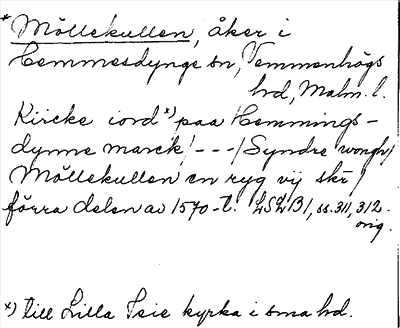 * Möllekullen, åker i
Hemmesdynge sn, Vemmenhögs
hd, Malm. l.
Kircke iord x) paa Hemmings-
dynne marck /---/ Syndre wongh /
Möllekullen en ryg vij skr /
förra delen av 1570-t. LSLB 1, ss. 311, 312.
orig.
x) till Lilla Isie kyrka i sma hd.